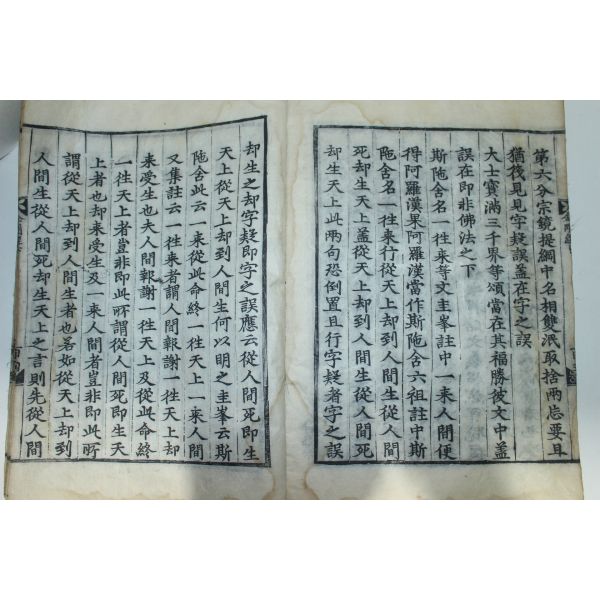 第六分宗鏡提綱中名相雙泯取捨兩忘要耳
猶筏見見字疑誤盖在字之誤
大士寶滿三千界等頌當在其福勝彼文中盖
誤在即非佛法之下
斯陁含名一徃来等文圭峯註中一来人間便
得阿羅漢果阿羅漢當作斯陁含六祖註中斯
陁含名一徃来行從天上却到人間生從人間死
死却生天上盖從天上却到人間生從人間死
却生天上此兩句恐倒置且行字疑者字之誤
却生之却字疑即字之誤應云從人間死即生
天上從天上却到人間生何以明之圭峯云斯
陁含此云一来從此命終一徃天上一来人間
又集註云一徃来者謂人間報謝一徃天上却
来受生也夫人間報謝一徃天上及從此命終
一徃天上者豈非即此所謂從人間死即生天
上者也却来受生及一来人間者豈非即此所
謂從天上却到人間生者也若如從天上却到
人間生從人間死却生天上之言則先從人間